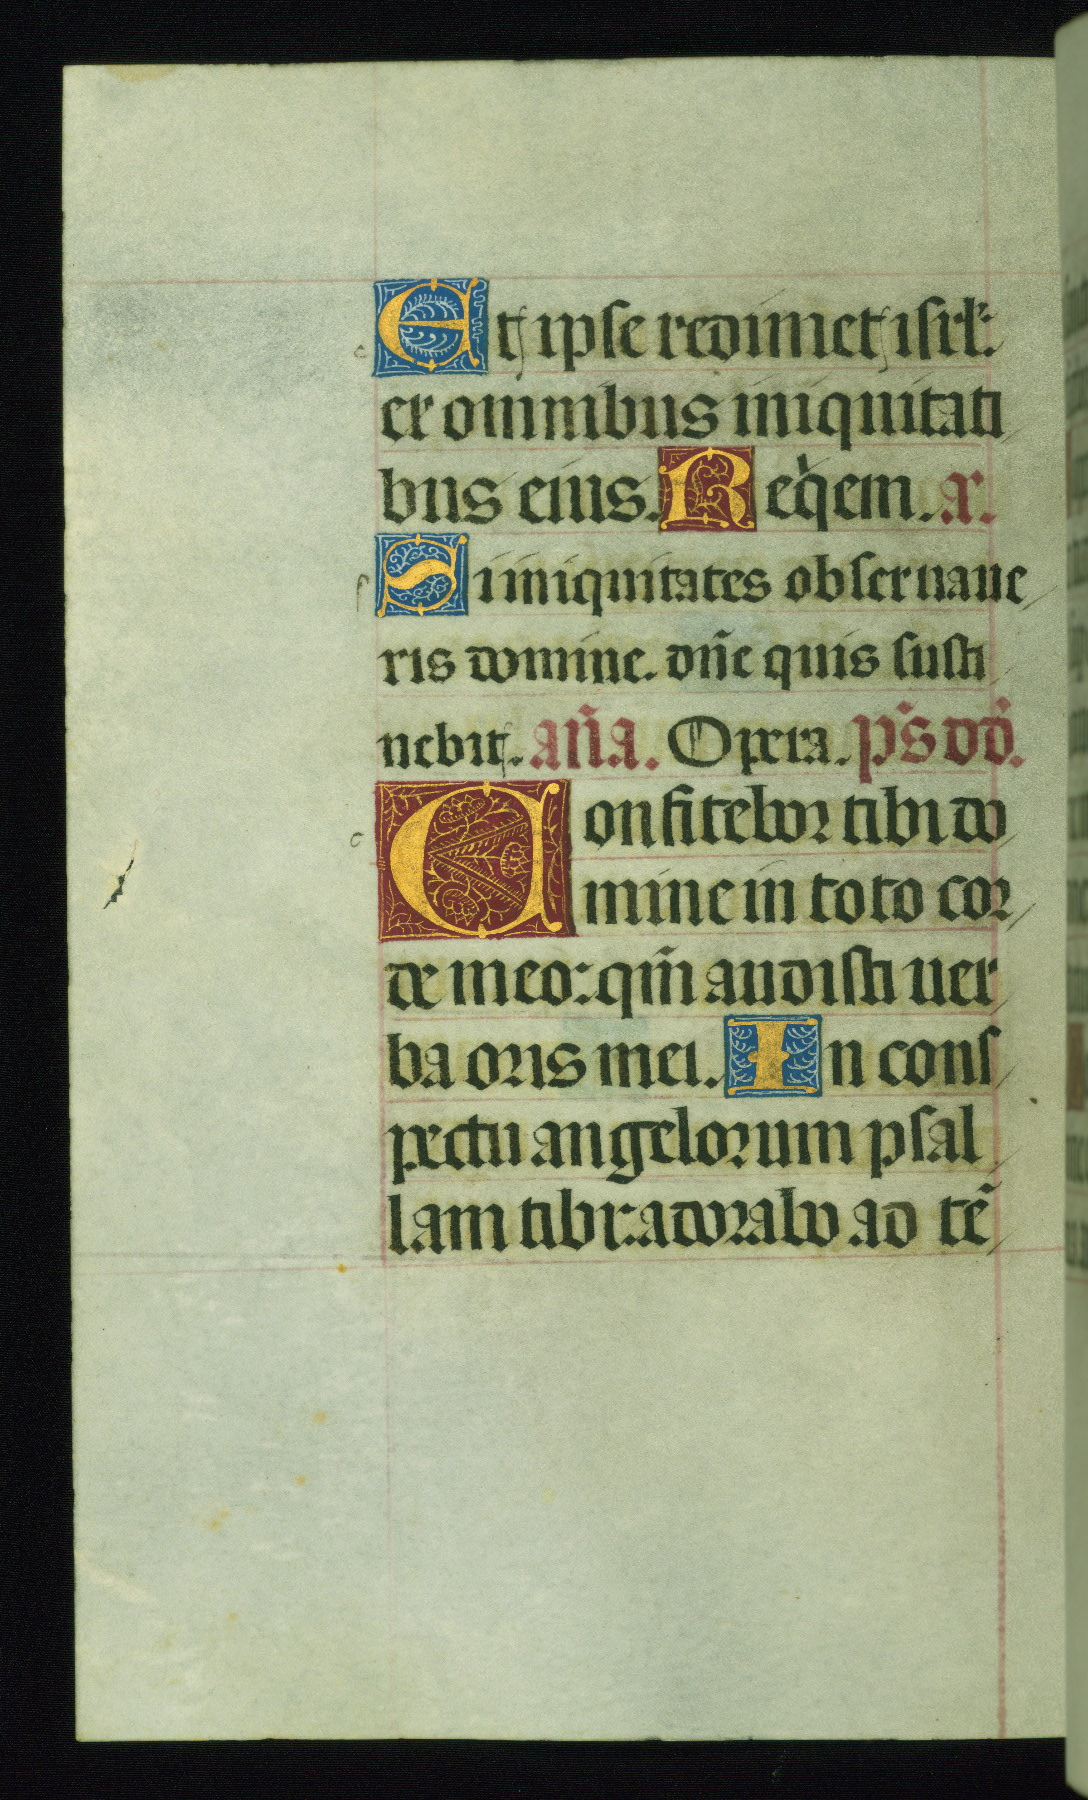 Et ipse redimet isrl':
ex omnibus iniquitati
bus eius. Req̇em. a.
Si iniquitates obseruaue
ris domine. dñe quis susti
nebit. aña. Opera. p̄s dd̄.
Confitebor tibi do
mine in toto cor
de meo: qm̄ audisti uer
ba oris mei. In cons
pectu angelorum psal
lam tibi: adorabo ad tē